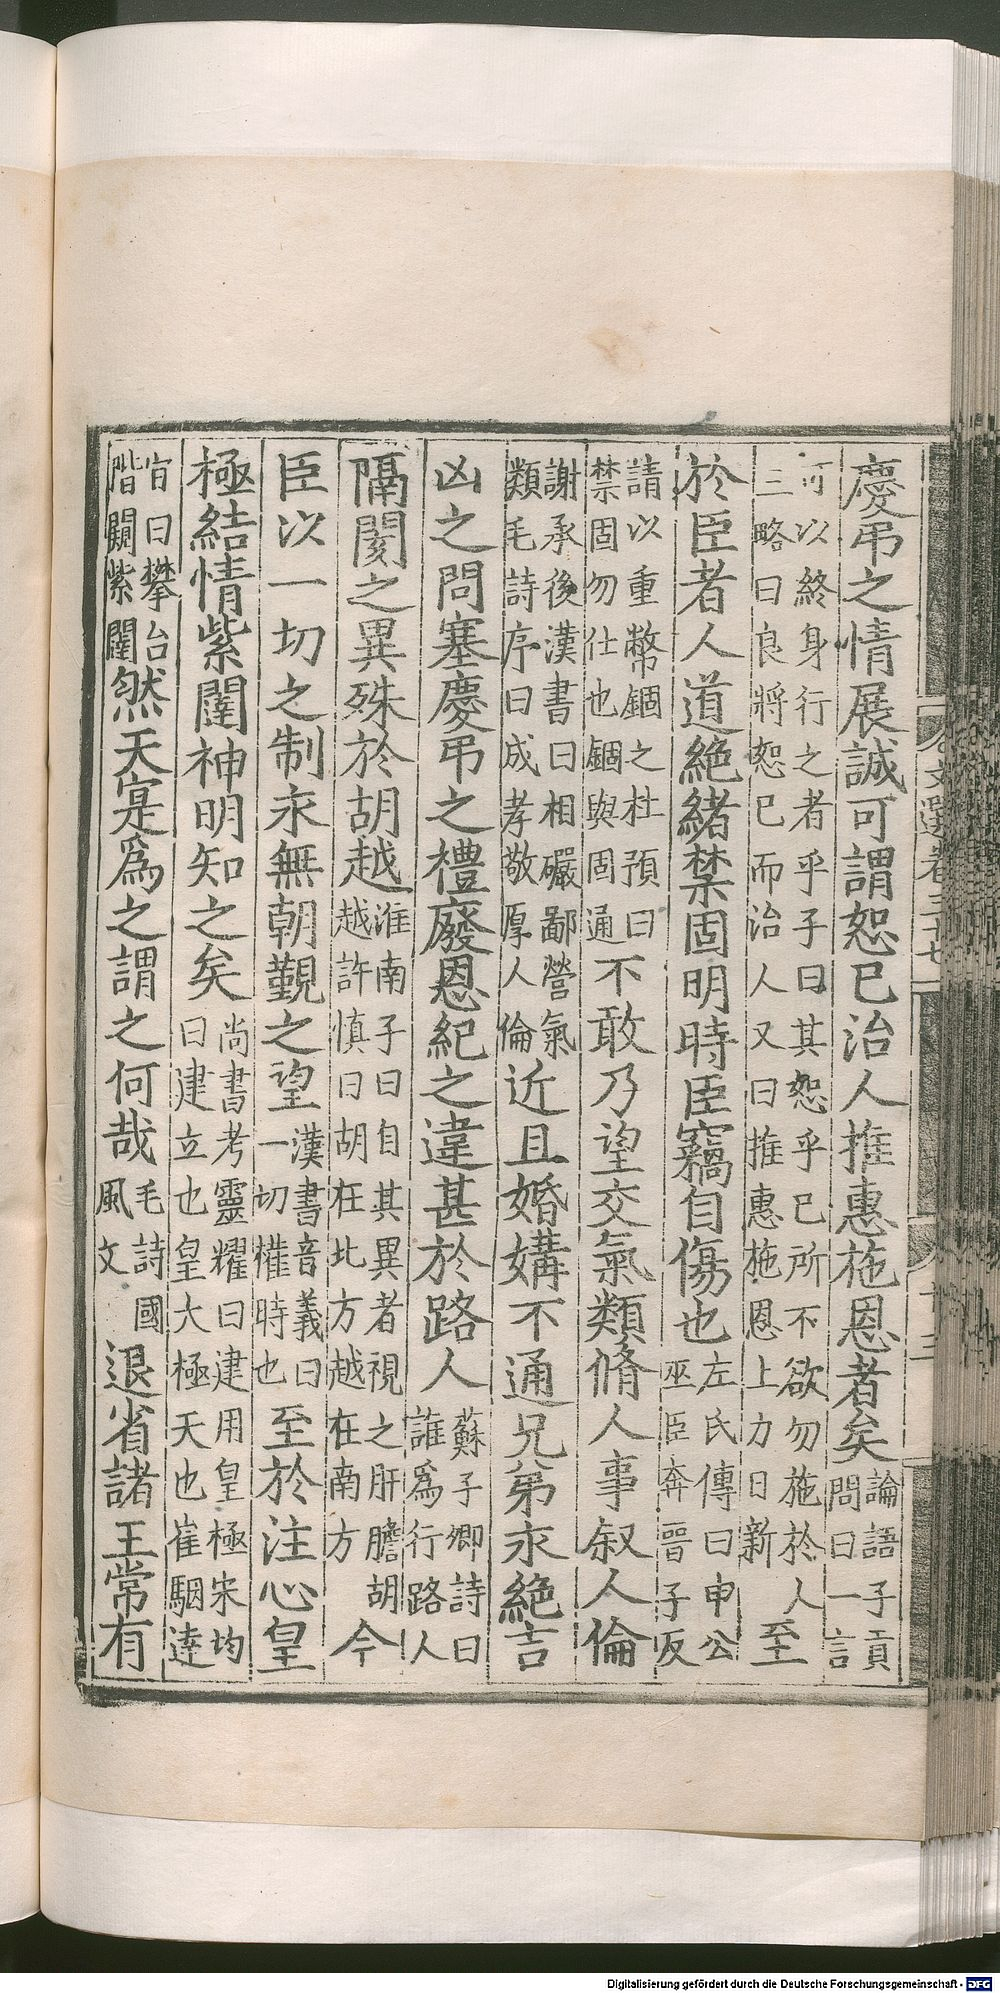 慶弔之情展誠可謂恕已治人推惠施恩者矣論語子貢問曰一言
可以終身行之者乎子曰其恕乎已所不欲勿施於人三略曰良將恕已而治人又曰推惠施恩士力日新至
於臣者人道絶緒禁固明時臣竊自傷也左氏傳曰申公巫臣奔晉子反
請以重幣錮之杜預曰禁固勿仕也錮與固通不敢乃望交氣類脩人事叙人倫
謝承後漢書曰相礹鄙營氣類毛詩序曰成孝敬厚人倫近且婚媾不通兄弟永絶吉
凶之問塞慶弔之禮廢恩紀之違甚於路人蘇子卿詩曰誰爲行路人
隔閡之異殊於胡越淮南子曰自其異者視之肝膽胡越許慎曰胡在北方越在南方今
臣以一切之制永無朝覲之望漢書音義曰一切權時也至於注心皇
極結情紫闥神明知之矣尚書考靈耀曰建用皇極宋均曰建立也皇大極天也崔駰達
旨曰攀台階闚紫闥然天寔爲之謂之何哉毛詩國風文退省諸王常有
文選卷三十七
Digitalisierung gefördert durch die Deutsche Forschungsgemeinschaft - DFG